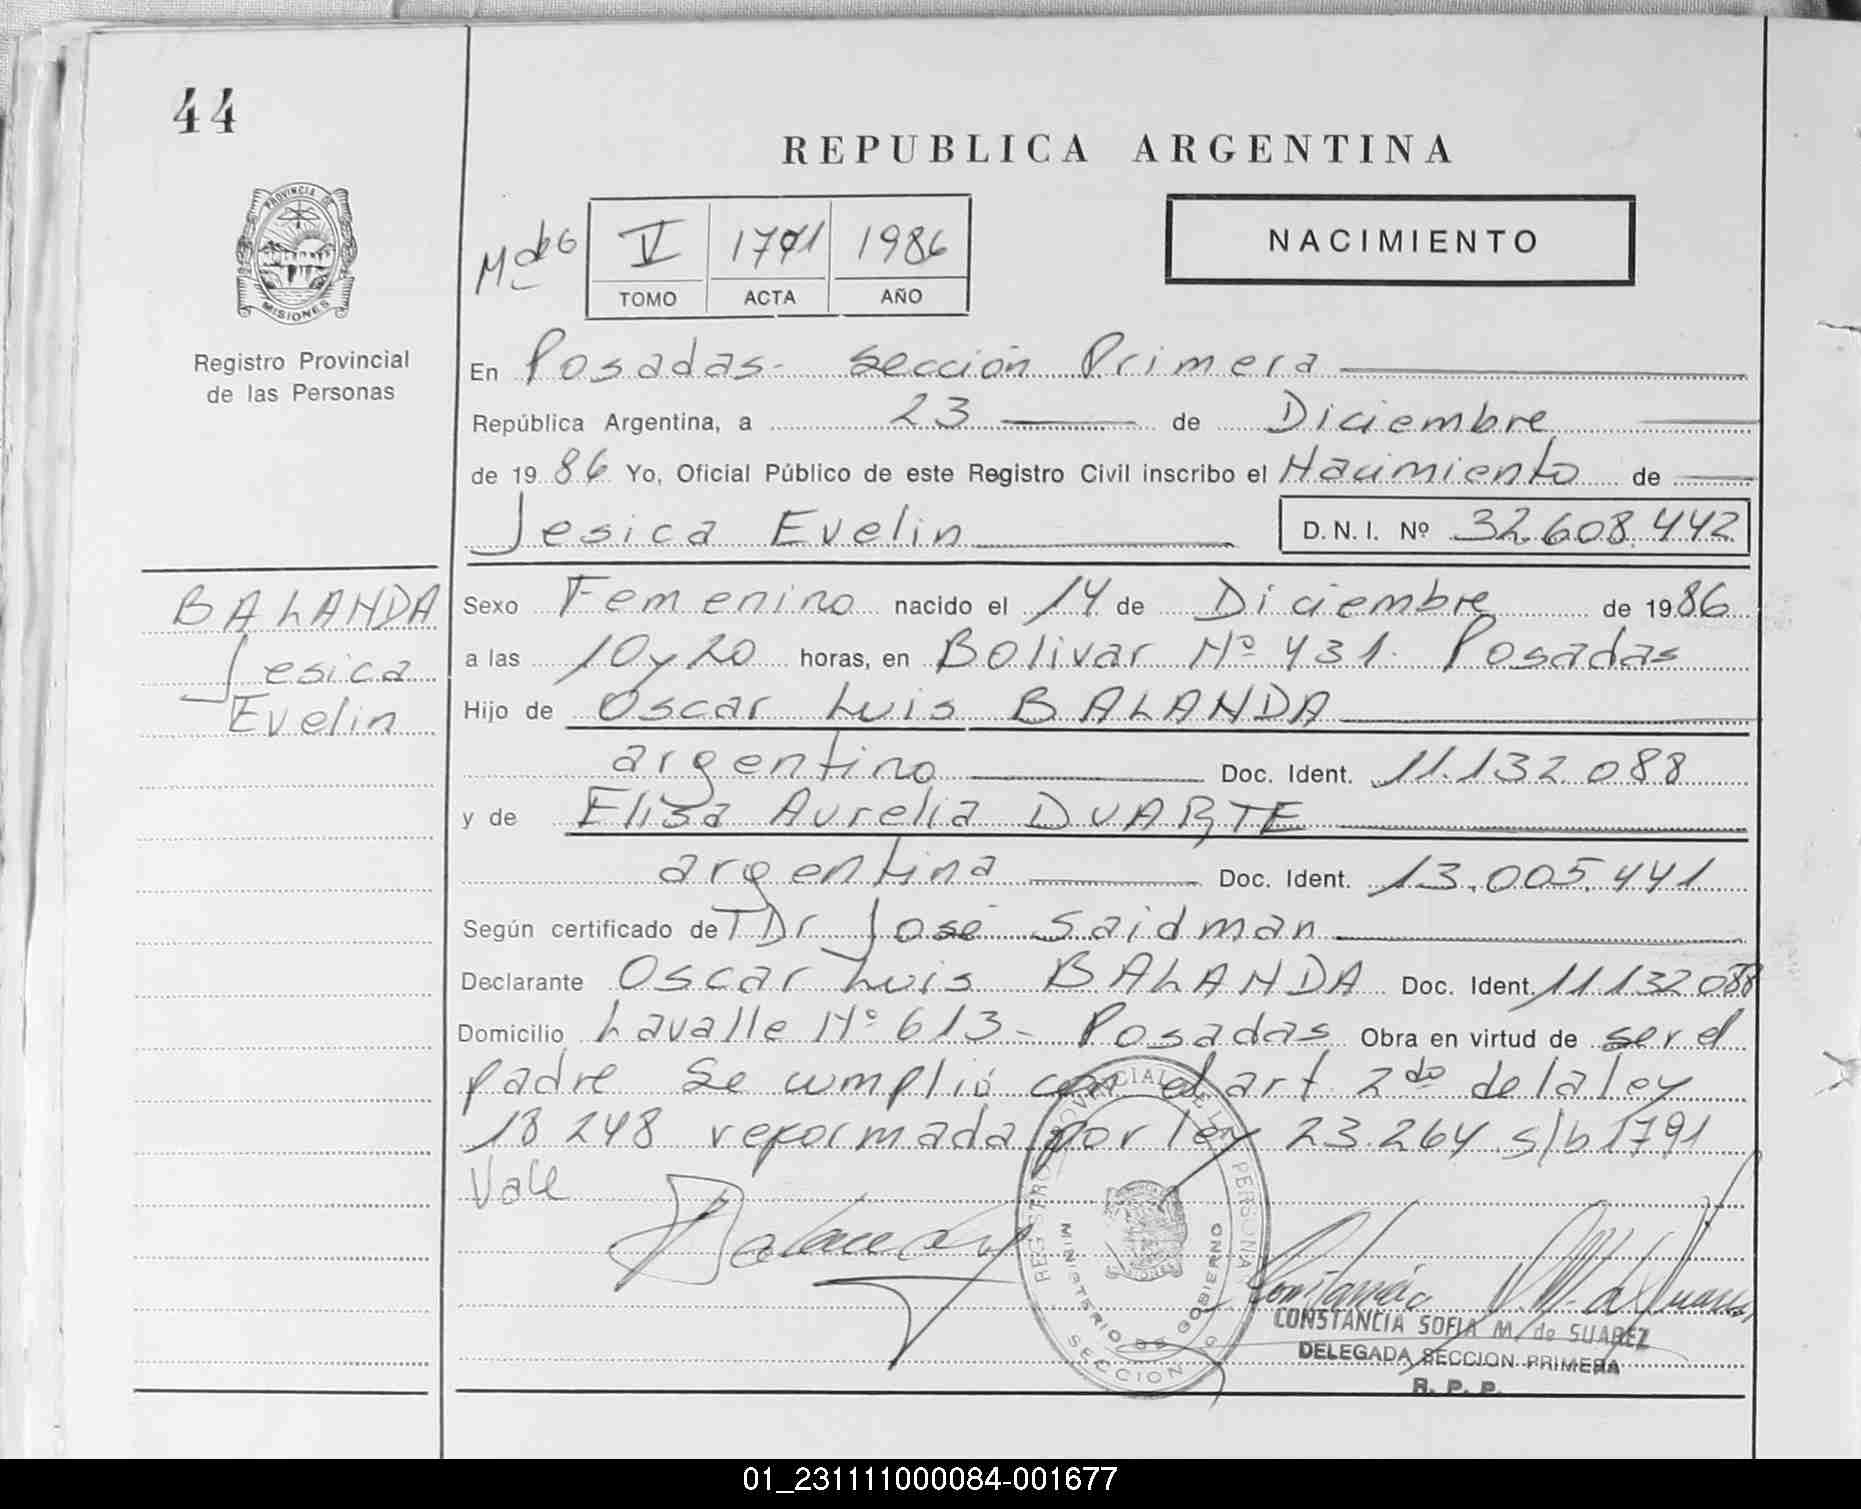 44
REPUBLICA ARGENTINA
PROVINCIA DE
MISIONES
V 1791 1986
TOMO ACTA AÑO
NACIMIENTO
Registro Provincial
de las Personas
En Posadas- Sección Primera
República Argentina, a 23 de Diciembre
de 1986 Yo, Oficial Público de este Registro Civil inscribo el Nacimiento de
Jesica Evelin D.N.I. Nº 32.608.442
BALANDA
Jesica
Evelin
Sexo Femenino nacido el 14 de Diciembre de 1986
a las 10 y 20 horas, en Bolivar Nº 431. Posadas
Hijo de Oscar Luis BALANDA
argentino Doc. Ident. 11.132.088
y de Elisa Aurelia DUARTE
argentina Doc. Ident. 13.005.441
Según certificado de TDr José Saidman
Declarante Oscar Luis BALANDA Doc. Ident. 11132088
Domicilio Lavalle Nº 613- Posadas Obra en virtud de ser el
padre Se cumplió con el art 2do de la ley
18248 reformada por ley 23.264 s/b 1791
Vale
REGISTRO PROVINCIAL DE LAS PERSONAS
MINISTERIO DE GOBIERNO
SECCION
CONSTANCIA SOFIA M. de SUAREZ
DELEGADA SECCION PRIMERA
R. P. P.
01_231111000084-001677